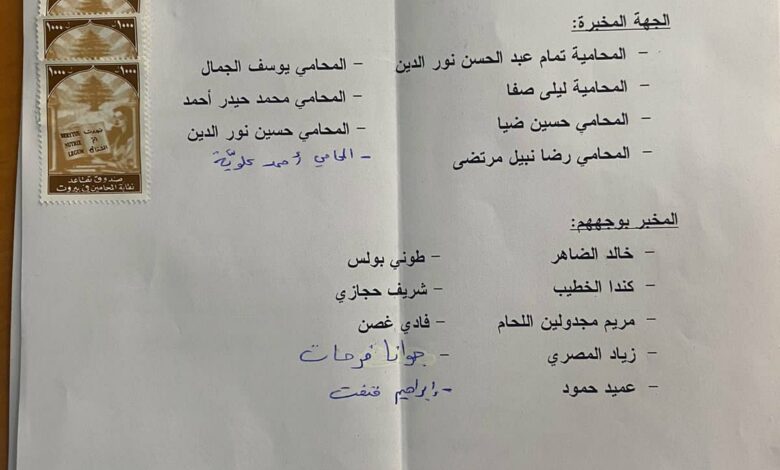 ١٠٠٠ ١٠٠٠
١٠٠٠ ١٠٠٠
١٠٠٠ ١٠٠٠
BERYTUS
NUTRIX
LEGUM
صندوق تقاعد
نقابة المحامين في بيروت
الجهة المخبرة:
– المحامية تمام عبد الحسن نور الدين – المحامي يوسف الجمال
– المحامية ليلى صفا – المحامي محمد حيدر أحمد
– المحامي حسين ضيا – المحامي حسين نور الدين
– المحامي رضا نبيل مرتضى – المحامي أحمد علويّة
المخبر بوجههم:
– خالد الضاهر – طوني بولس
– كندا الخطيب – شريف حجازي
– مريم مجدولين اللحام – فادي غصن
– زياد المصري – جوانا فرحات
– عميد حمود – إبراهيم فتفت